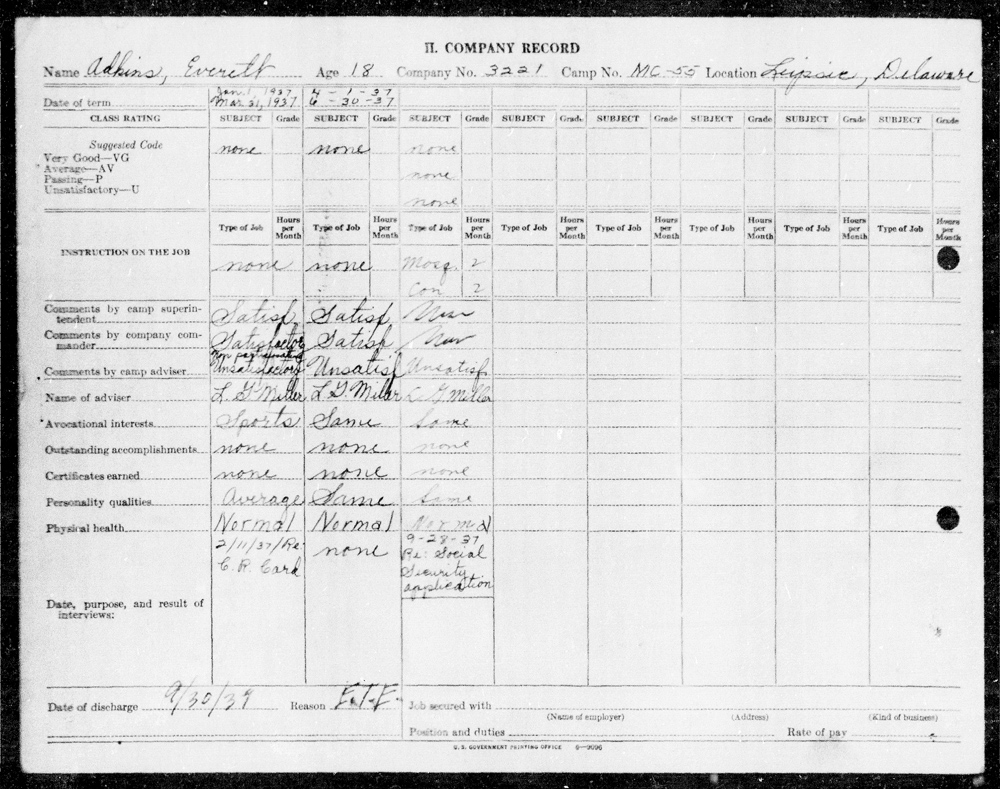 II. COMPANY RECORD
Name Adkins, Everett Age 18 Company No. 3221 Camp No. MC-55 Location Leipsic, Delaware
Date of term Jan. 1, 1937 Mar. 31, 1937 4-1-37 6-30-37
CLASS RATING SUBJECT Grade SUBJECT Grade SUBJECT Grade SUBJECT Grade SUBJECT Grade SUBJECT Grade SUBJECT Grade SUBJECT Grade
Suggested Code none none none
Very Good—VG
Average—AV none
Passing—P
Unsatisfactory—U none
INSTRUCTION ON THE JOB Type of Job Hours per Month Type of Job Hours per Month Type of Job Hours per Month Type of Job Hours per Month Type of Job Hours per Month Type of Job Hours per Month Type of Job Hours per Month Type of Job Hours per Month
none none Mosq. 2
Con 2
Comments by camp superintendent Satisf Satisf
Comments by company commander Satisfactory Satisf
Comments by camp adviser Non participating Unsatisfactory Unsatisf Unsatisf
Name of adviser L. G. Miller L. G. Miller L G Miller
Avocational interests Sports Same Same
Outstanding accomplishments none none none
Certificates earned none none none
Personality qualities Average Same Same
Physical health Normal Normal Normal
Date, purpose, and result of interviews: 2/11/37/Re: C. R. Card none 9-28-37 Re: Social Security application
Date of discharge 9/30/37 Reason E.T.E. Job secured with
(Name of employer) (Address) (Kind of business)
Position and duties Rate of pay
U. S. GOVERNMENT PRINTING OFFICE 6—9096